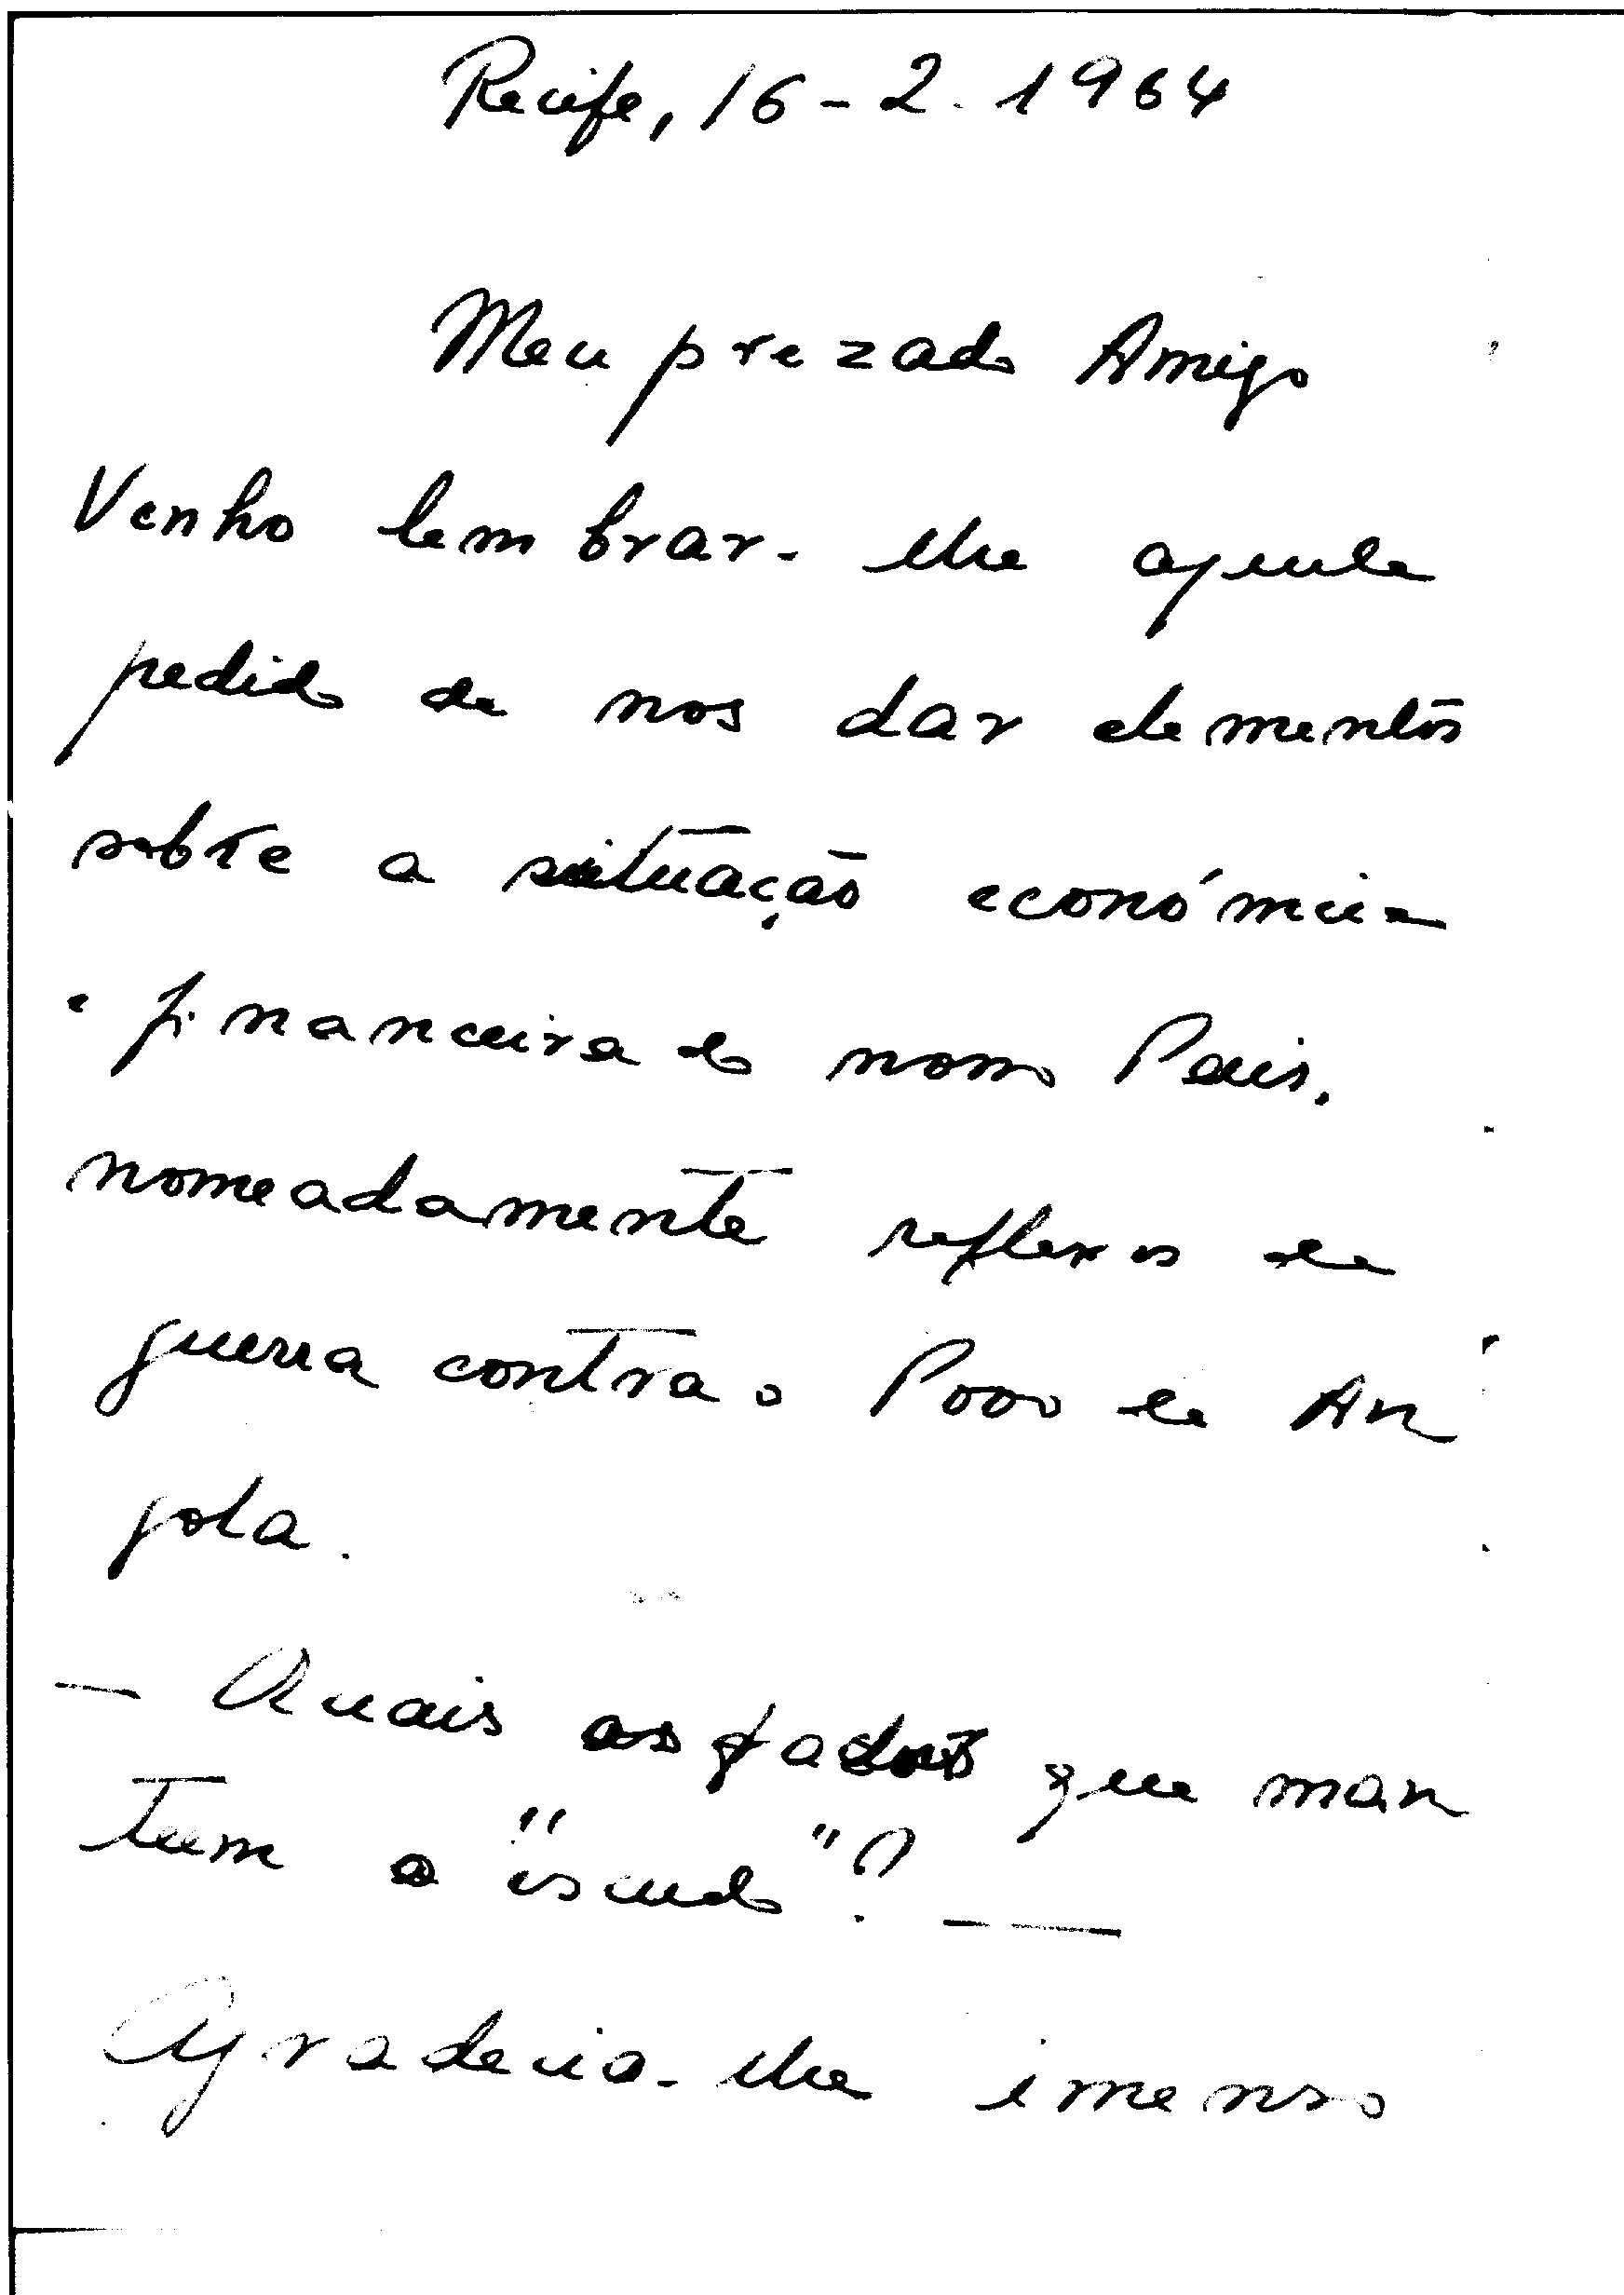 Recife, 16-2-1964
Meu prezado Amigo
Venho lembrar-lhe aquele
pedido de nos dar elementos
sobre a situação económica
e financeira do nosso País.
nomeadamente reflexos da
guerra contra o Povo de An
gola.
— Quais os factores que man
teem o "escudo"? —
Agradecia-lhe imenso